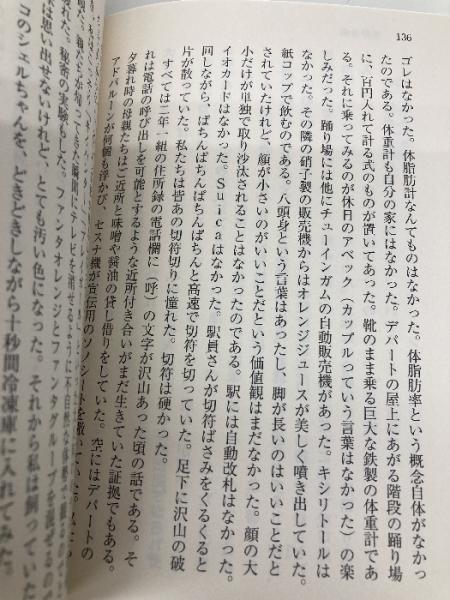 136
ゴレはなかった。体脂肪計なんてものはなかった。体脂肪率という概念自体がなかっ
たのである。体重計も自分の家にはなかった。デパートの屋上にあがる階段の踊り場
に、百円入れて計る式のものが置いてあった。靴のまま乗る巨大な鉄製の体重計であ
る。それに乗ってみるのが休日のアベック（カップルっていう言葉はなかった）の楽
しみだった。踊り場には他にチューインガムの自動販売機があった。キシリトールは
なかった。その隣の硝子製の販売機からはオレンジジュースが美しく噴き出していた。
紙コップで飲むのである。八頭身という言葉はあったし、脚が長いのはいいことだと
されていたけれど、顔が小さいのがいいことだという価値観はまだなかった。顔の大
小だけが単独で取り沙汰されることはなかったのである。駅には自動改札はなかった。
イオカードはなかった。Ｓｕｉｃａはなかった。駅員さんが切符ばさみをくるくると
回しながら、ぱちんぱちんぱちんぱちんと高速で切符を切っていた。足下に沢山の破
片が散っていた。私たちは皆あの切符切りに憧れた。切符は硬かった。
すべては二年一組の住所録の電話欄に（呼）の文字が沢山あった頃の話である。そ
れは電話の呼び出しを可能とするような近所付き合いがまだ生きていた証拠でもある。
夕暮れ時の母親たちはご近所と味噌や醤油の貸し借りをしていた。空にはデパートの
アドバルーンが何個も浮かび、セスナ機が宣伝用のソノシートを撒いていた。
は思い出せないけれど、とても汚い色になった。それから
コのシェルちゃんを、どきどきしながら十秒間冷凍庫に入れてみた。